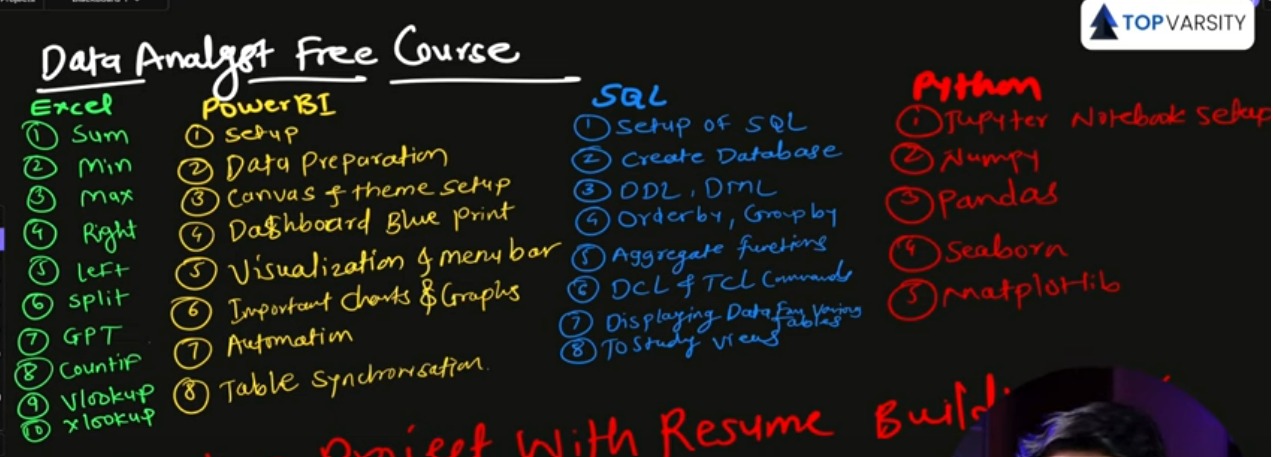 TOPVARSITY
Data Analyst Free Course
Excel
① Sum
② Min
③ Max
④ Right
⑤ left
⑥ split
⑦ GPT
⑧ Countif
⑨ Vlookup
⑩ xlookup
PowerBI
① setup
② Data Preparation
③ Canvas & theme setup
④ Dashboard Blue print
⑤ Visualization & menu bar
⑥ Important charts & Graphs
⑦ Automation
⑧ Table synchronisation
SQL
① Setup of SQL
② Create Database
③ DDL, DML
④ Orderby, Group by
⑤ Aggregate functions
⑥ DCL & TCL Commands
⑦ Displaying Data Various Tables
⑧ To Study Views
Python
① Jupyter Notebook Setup
② Numpy
③ Pandas
④ Seaborn
⑤ matplotlib
Project With Resume